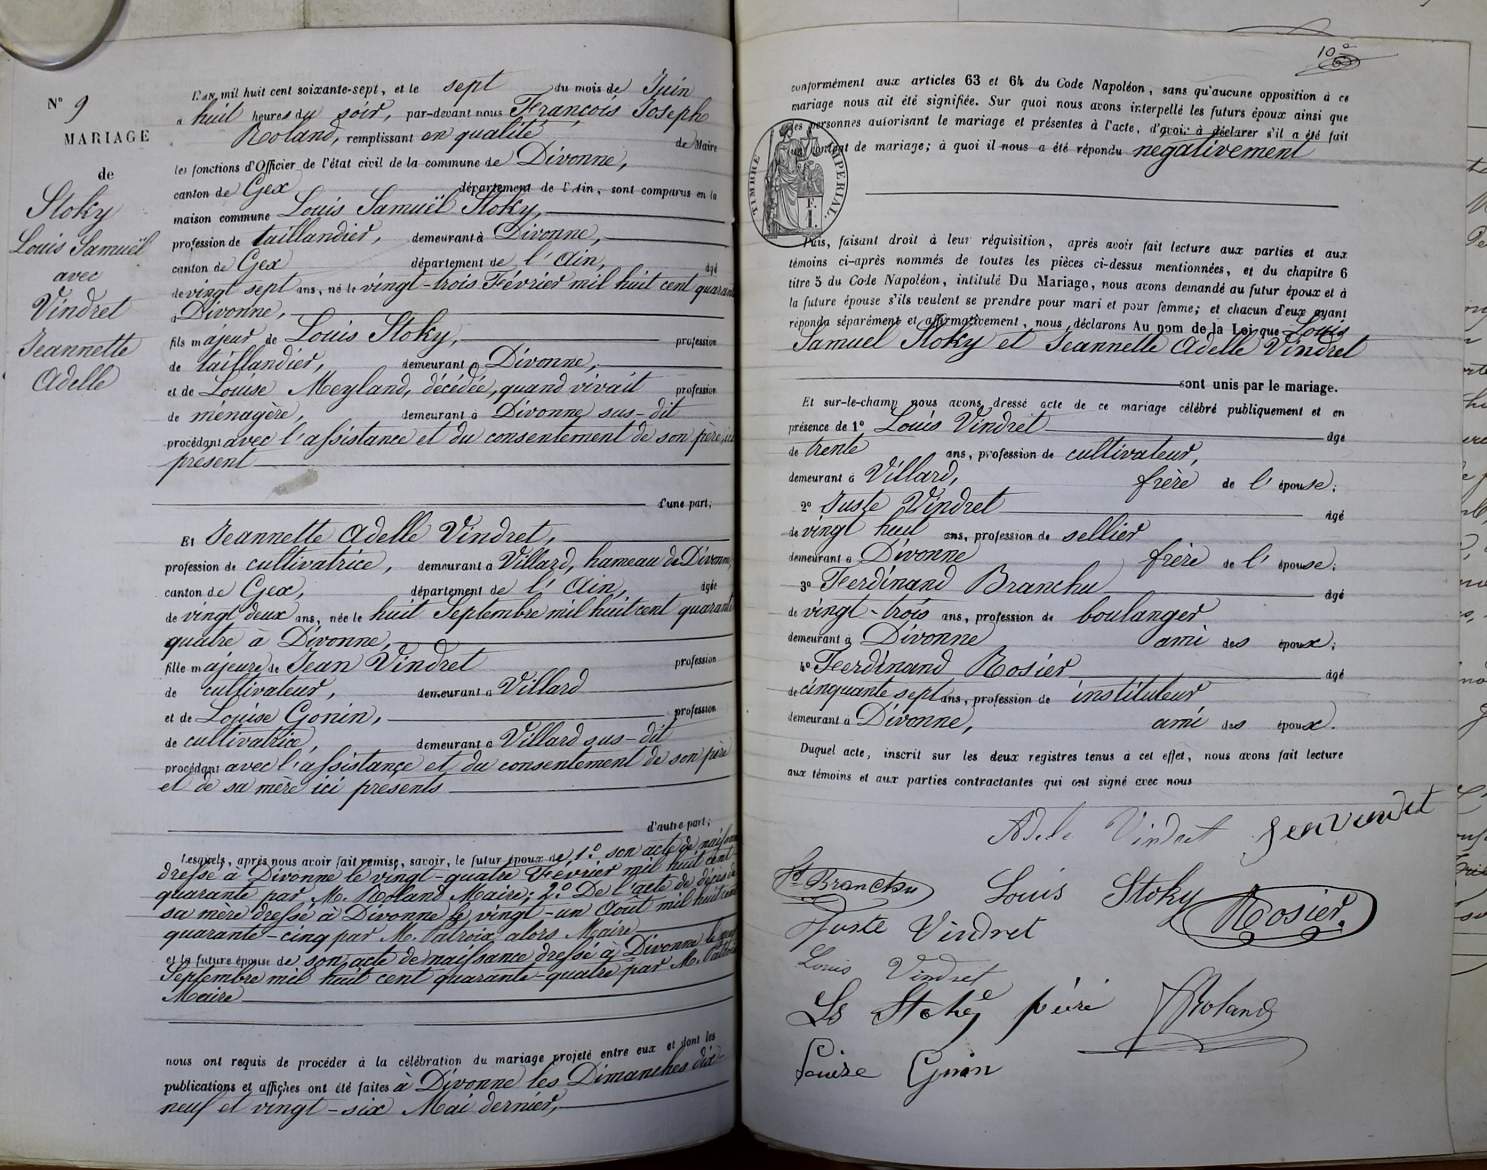 N° 9
MARIAGE
de
Stoky
Louis Samuël
avec
Vindret
Jeannette
Adelle
L'an mil huit cent soixante-sept, et le sept du mois de Juin
a huit heures du soir, par-devant nous François Joseph
Roland, remplissant en qualité de Maire
les fonctions d'Officier de l'état civil de la commune de Divonne,
canton de Gex département de l'Ain, sont comparus en la
maison commune Louis Samuël Stoky,
profession de taillandier, demeurant à Divonne,
canton de Gex département de l'Ain, âgé
de vingt sept ans, né le vingt-trois Février mil huit cent quarante
à Divonne,
fils majeur de Louis Stoky, profession
de taillandier, demeurant à Divonne,
et de Louise Meyland, décédée, quand vivait profession
de menagère, demeurant à Divonne sus-dit
procédant avec l'assistance et du consentement de son père, ici
présent
d'une part;
Et Jeannette Adelle Vindret,
profession de cultivatrice, demeurant à Villard, hameau de Divonne
canton de Gex, département de l'Ain, âgée
de vingt deux ans, née le huit Septembre mil huit cent quarante
quatre à Divonne,
fille majeure de Jean Vindret profession
de cultivateur, demeurant à Villard
et de Louise Gonin, profession
de cultivatrice, demeurant à Villard sus-dit
procédant avec l'assistance et du consentement de son père
et de sa mère ici présents
d'autre part;
Lesquels, après nous avoir fait remise, savoir, le futur époux de 1° son acte de naissance
dressé à Divonne le vingt-quatre Février mil huit cent
quarante par M. Roland Maire; 2° De l'acte de décès de
sa mère dressé à Divonne le vingt-un Août mil huit cent
quarante-cinq par M. Patroix alors Maire
et la future épouse de son acte de naissance dressé à Divonne le
Septembre mil huit cent quarante-quatre par M.
Maire
nous ont requis de procéder à la célébration du mariage projeté entre eux et dont les
publications et affiches ont été faites à Divonne les Dimanches dix-
neuf et vingt-six Mai dernier,
10e
conformément aux articles 63 et 64 du Code Napoléon, sans qu'aucune opposition à ce
mariage nous ait été signifiée. Sur quoi nous avons interpellé les futurs époux ainsi que
les personnes autorisant le mariage et présentes à l'acte, d'avoir à déclarer s'il a été fait
un contrat de mariage; à quoi il nous a été répondu négativement
TIMBRE IMPÉRIAL
Puis, faisant droit à leur réquisition, après avoir fait lecture aux parties et aux
témoins ci-après nommés de toutes les pièces ci-dessus mentionnées, et du chapitre 6
titre 5 du Code Napoléon, intitulé Du Mariage, nous avons demandé au futur époux et à
la future épouse s'ils veulent se prendre pour mari et pour femme; et chacun d'eux ayant
répondu séparément et affirmativement, nous déclarons Au nom de la Loi que Louis
Samuel Stoky et Jeannette Adelle Vindret
sont unis par le mariage.
Et sur-le-champ nous avons dressé acte de ce mariage célébré publiquement et en
présence de 1° Louis Vindret âgé
de trente ans, profession de cultivateur,
demeurant à Villard, frère de l'épouse;
2° Juste Vindret âgé
de vingt huit ans, profession de sellier
demeurant à Divonne frère de l'épouse;
3° Ferdinand Branchu âgé
de vingt-trois ans, profession de boulanger
demeurant à Divonne ami des époux;
4° Ferdinand Rosier âgé
de cinquante sept ans, profession de instituteur
demeurant à Divonne, ami des époux.
Duquel acte, inscrit sur les deux registres tenus à cet effet, nous avons fait lecture
aux témoins et aux parties contractantes qui ont signé avec nous
Adele Vindret Jenvendet
Fd Branchu Louis Stoky Rosier
Juste Vindret
Louis Vindret
Ls Stoky père Roland
Louise Gonin